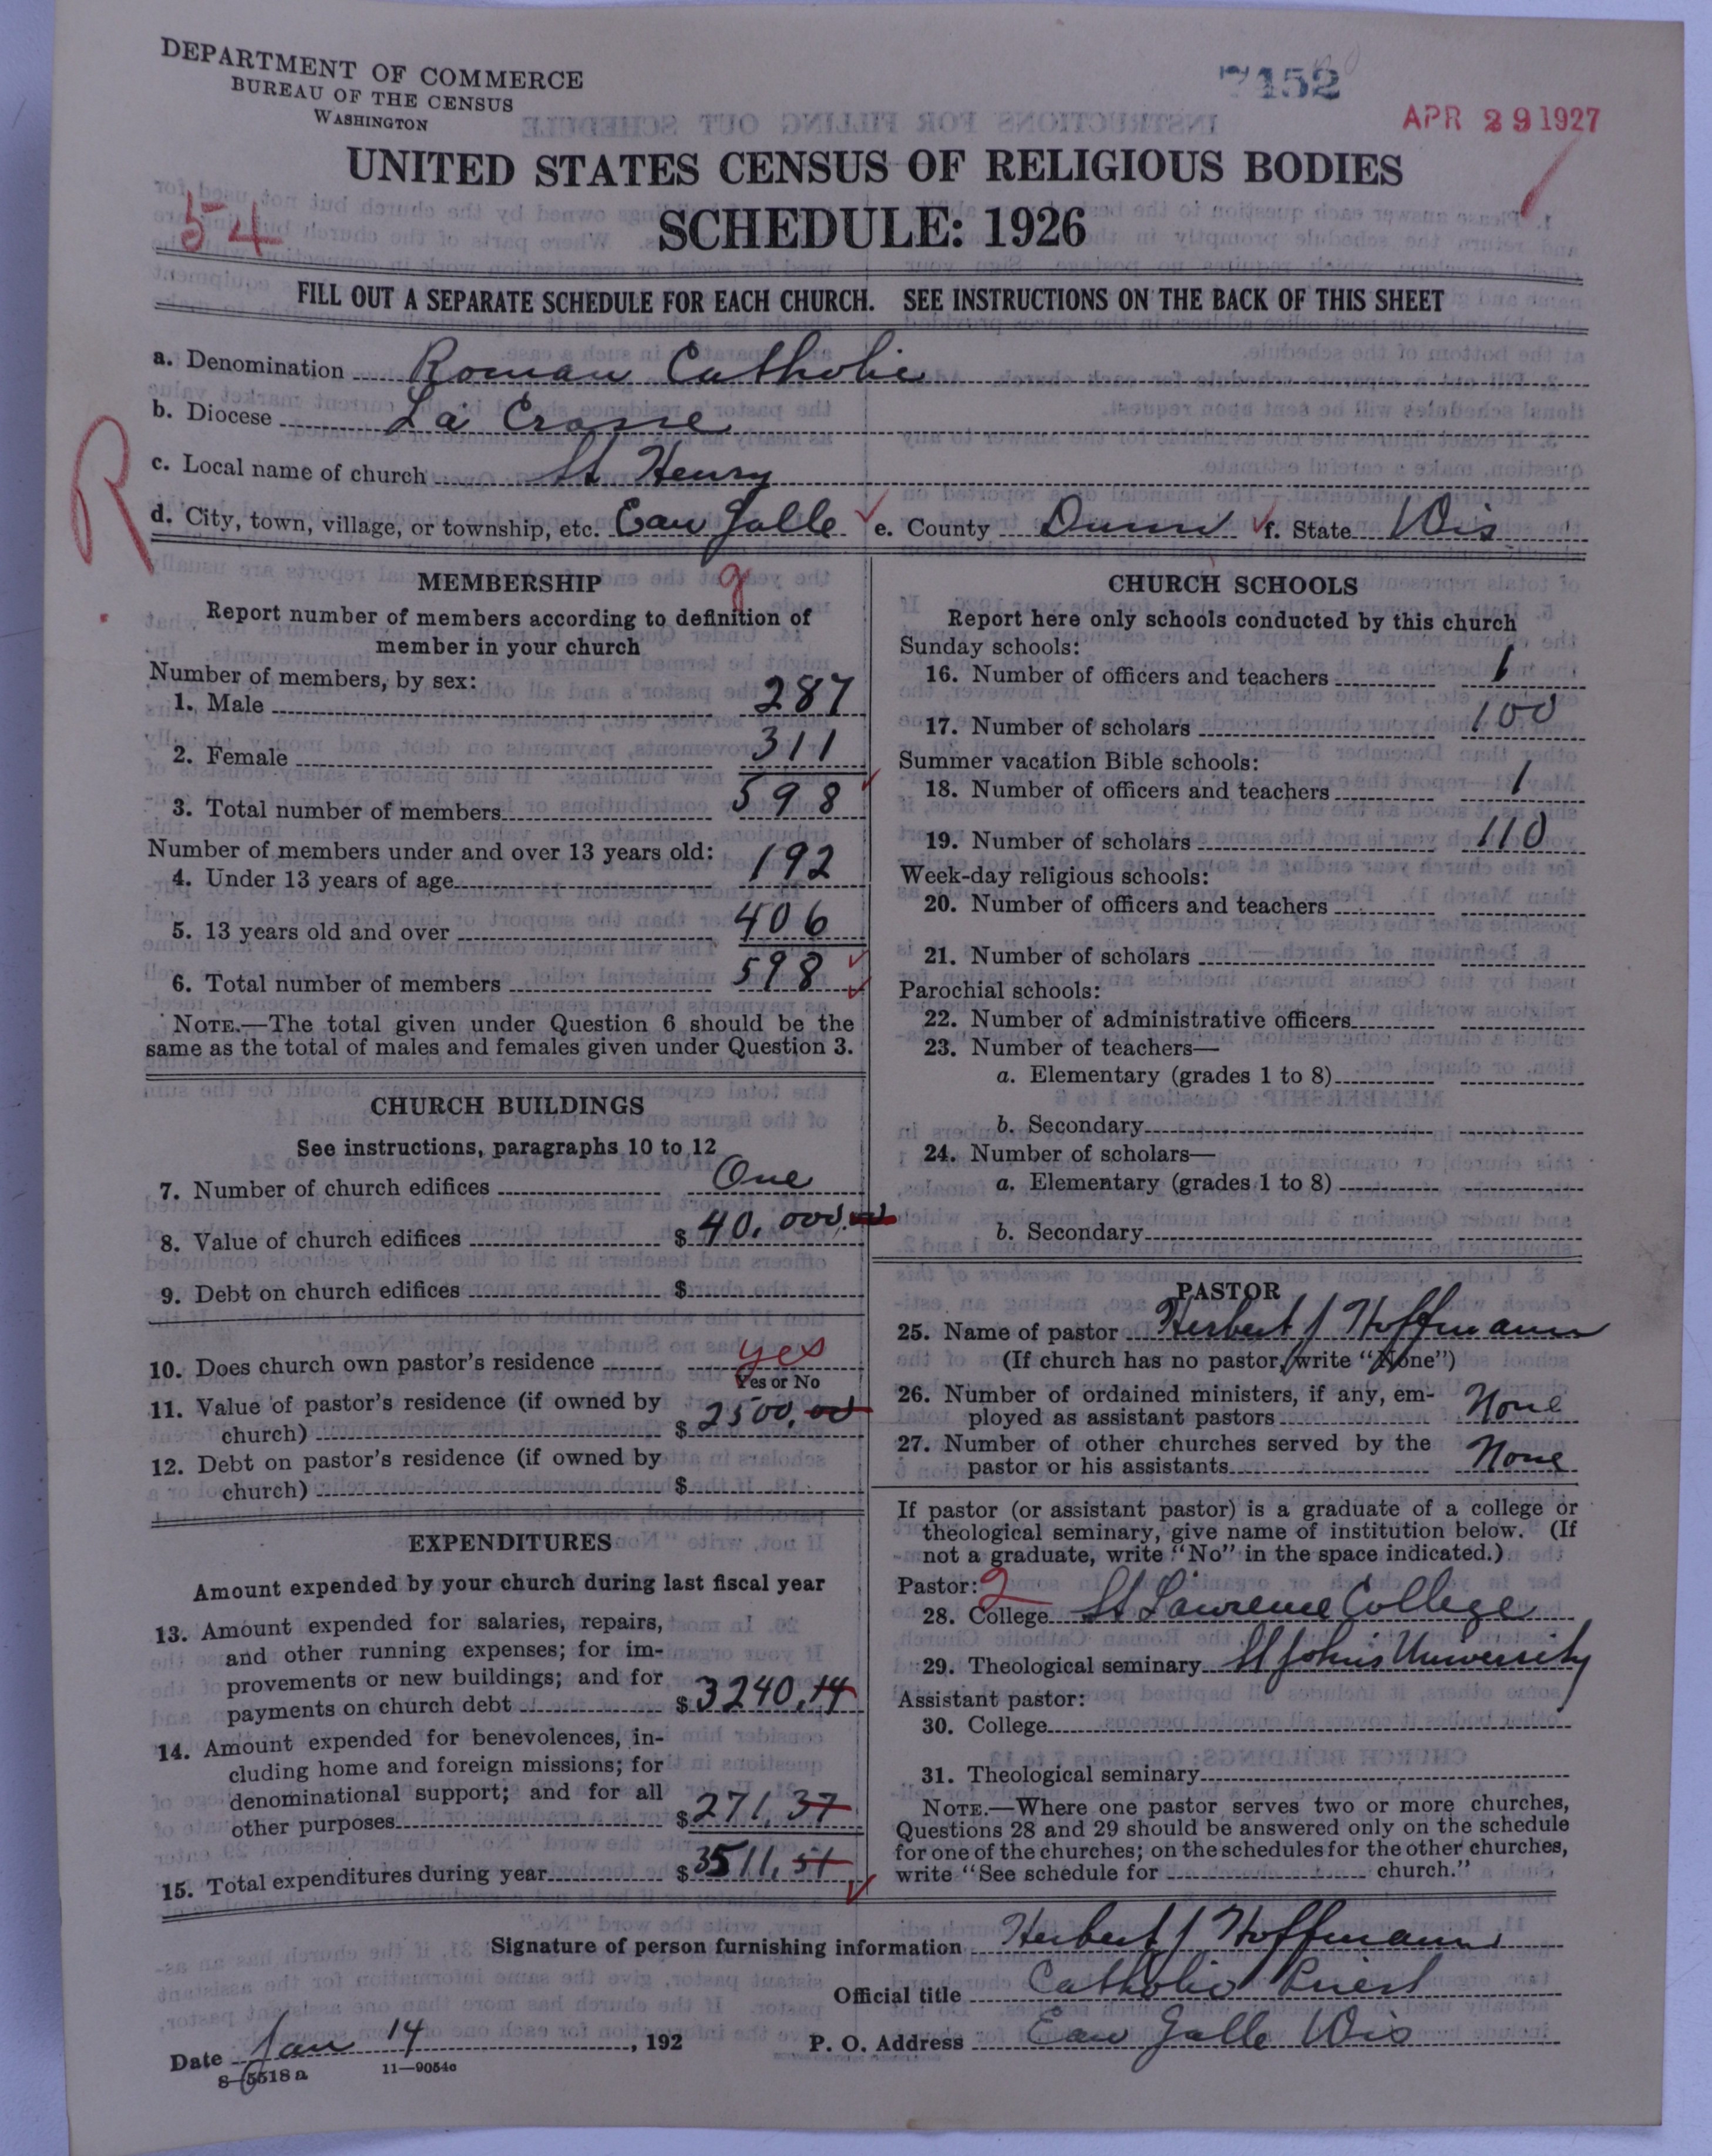 DEPARTMENT OF COMMERCE
BUREAU OF THE CENSUS
WASHINGTON
7452
APR 29 1927
UNITED STATES CENSUS OF RELIGIOUS BODIES
54
SCHEDULE: 1926
FILL OUT A SEPARATE SCHEDULE FOR EACH CHURCH. SEE INSTRUCTIONS ON THE BACK OF THIS SHEET
a. Denomination Roman Catholic
b. Diocese La Crosse
R
c. Local name of church St Henry
d. City, town, village, or township, etc. Eau Galle e. County Dunn f. State Wis
MEMBERSHIP
g
Report number of members according to definition of
member in your church
Number of members, by sex:
1. Male 287
2. Female 311
3. Total number of members 598
Number of members under and over 13 years old:
4. Under 13 years of age 192
5. 13 years old and over 406
6. Total number of members 598
NOTE.—The total given under Question 6 should be the
same as the total of males and females given under Question 3.
CHURCH BUILDINGS
See instructions, paragraphs 10 to 12
7. Number of church edifices One
8. Value of church edifices $ 40,000.00
9. Debt on church edifices $
10. Does church own pastor's residence yes
Yes or No
11. Value of pastor's residence (if owned by
church) $ 2500.00
12. Debt on pastor's residence (if owned by
church) $
EXPENDITURES
Amount expended by your church during last fiscal year
13. Amount expended for salaries, repairs,
and other running expenses; for im-
provements or new buildings; and for
payments on church debt $ 3240.14
14. Amount expended for benevolences, in-
cluding home and foreign missions; for
denominational support; and for all
other purposes $ 271.37
15. Total expenditures during year $ 3511.51
CHURCH SCHOOLS
Report here only schools conducted by this church
Sunday schools:
16. Number of officers and teachers 1
17. Number of scholars 100
Summer vacation Bible schools:
18. Number of officers and teachers 1
19. Number of scholars 110
Week-day religious schools:
20. Number of officers and teachers
21. Number of scholars
Parochial schools:
22. Number of administrative officers
23. Number of teachers—
a. Elementary (grades 1 to 8)
b. Secondary
24. Number of scholars—
a. Elementary (grades 1 to 8)
b. Secondary
PASTOR
25. Name of pastor Herbert J Hoffmann
(If church has no pastor, write "None")
26. Number of ordained ministers, if any, em-
ployed as assistant pastors None
27. Number of other churches served by the
pastor or his assistants None
If pastor (or assistant pastor) is a graduate of a college or
theological seminary, give name of institution below. (If
not a graduate, write "No" in the space indicated.)
Pastor: 2
28. College St Lawrence College
29. Theological seminary St Johns University
Assistant pastor:
30. College
31. Theological seminary
NOTE.—Where one pastor serves two or more churches,
Questions 28 and 29 should be answered only on the schedule
for one of the churches; on the schedules for the other churches,
write "See schedule for church."
Signature of person furnishing information Herbert J Hoffmann
Official title Catholic Priest
Date Jan 14, 192 P. O. Address Eau Galle Wis
8—5518 a 11—9054a